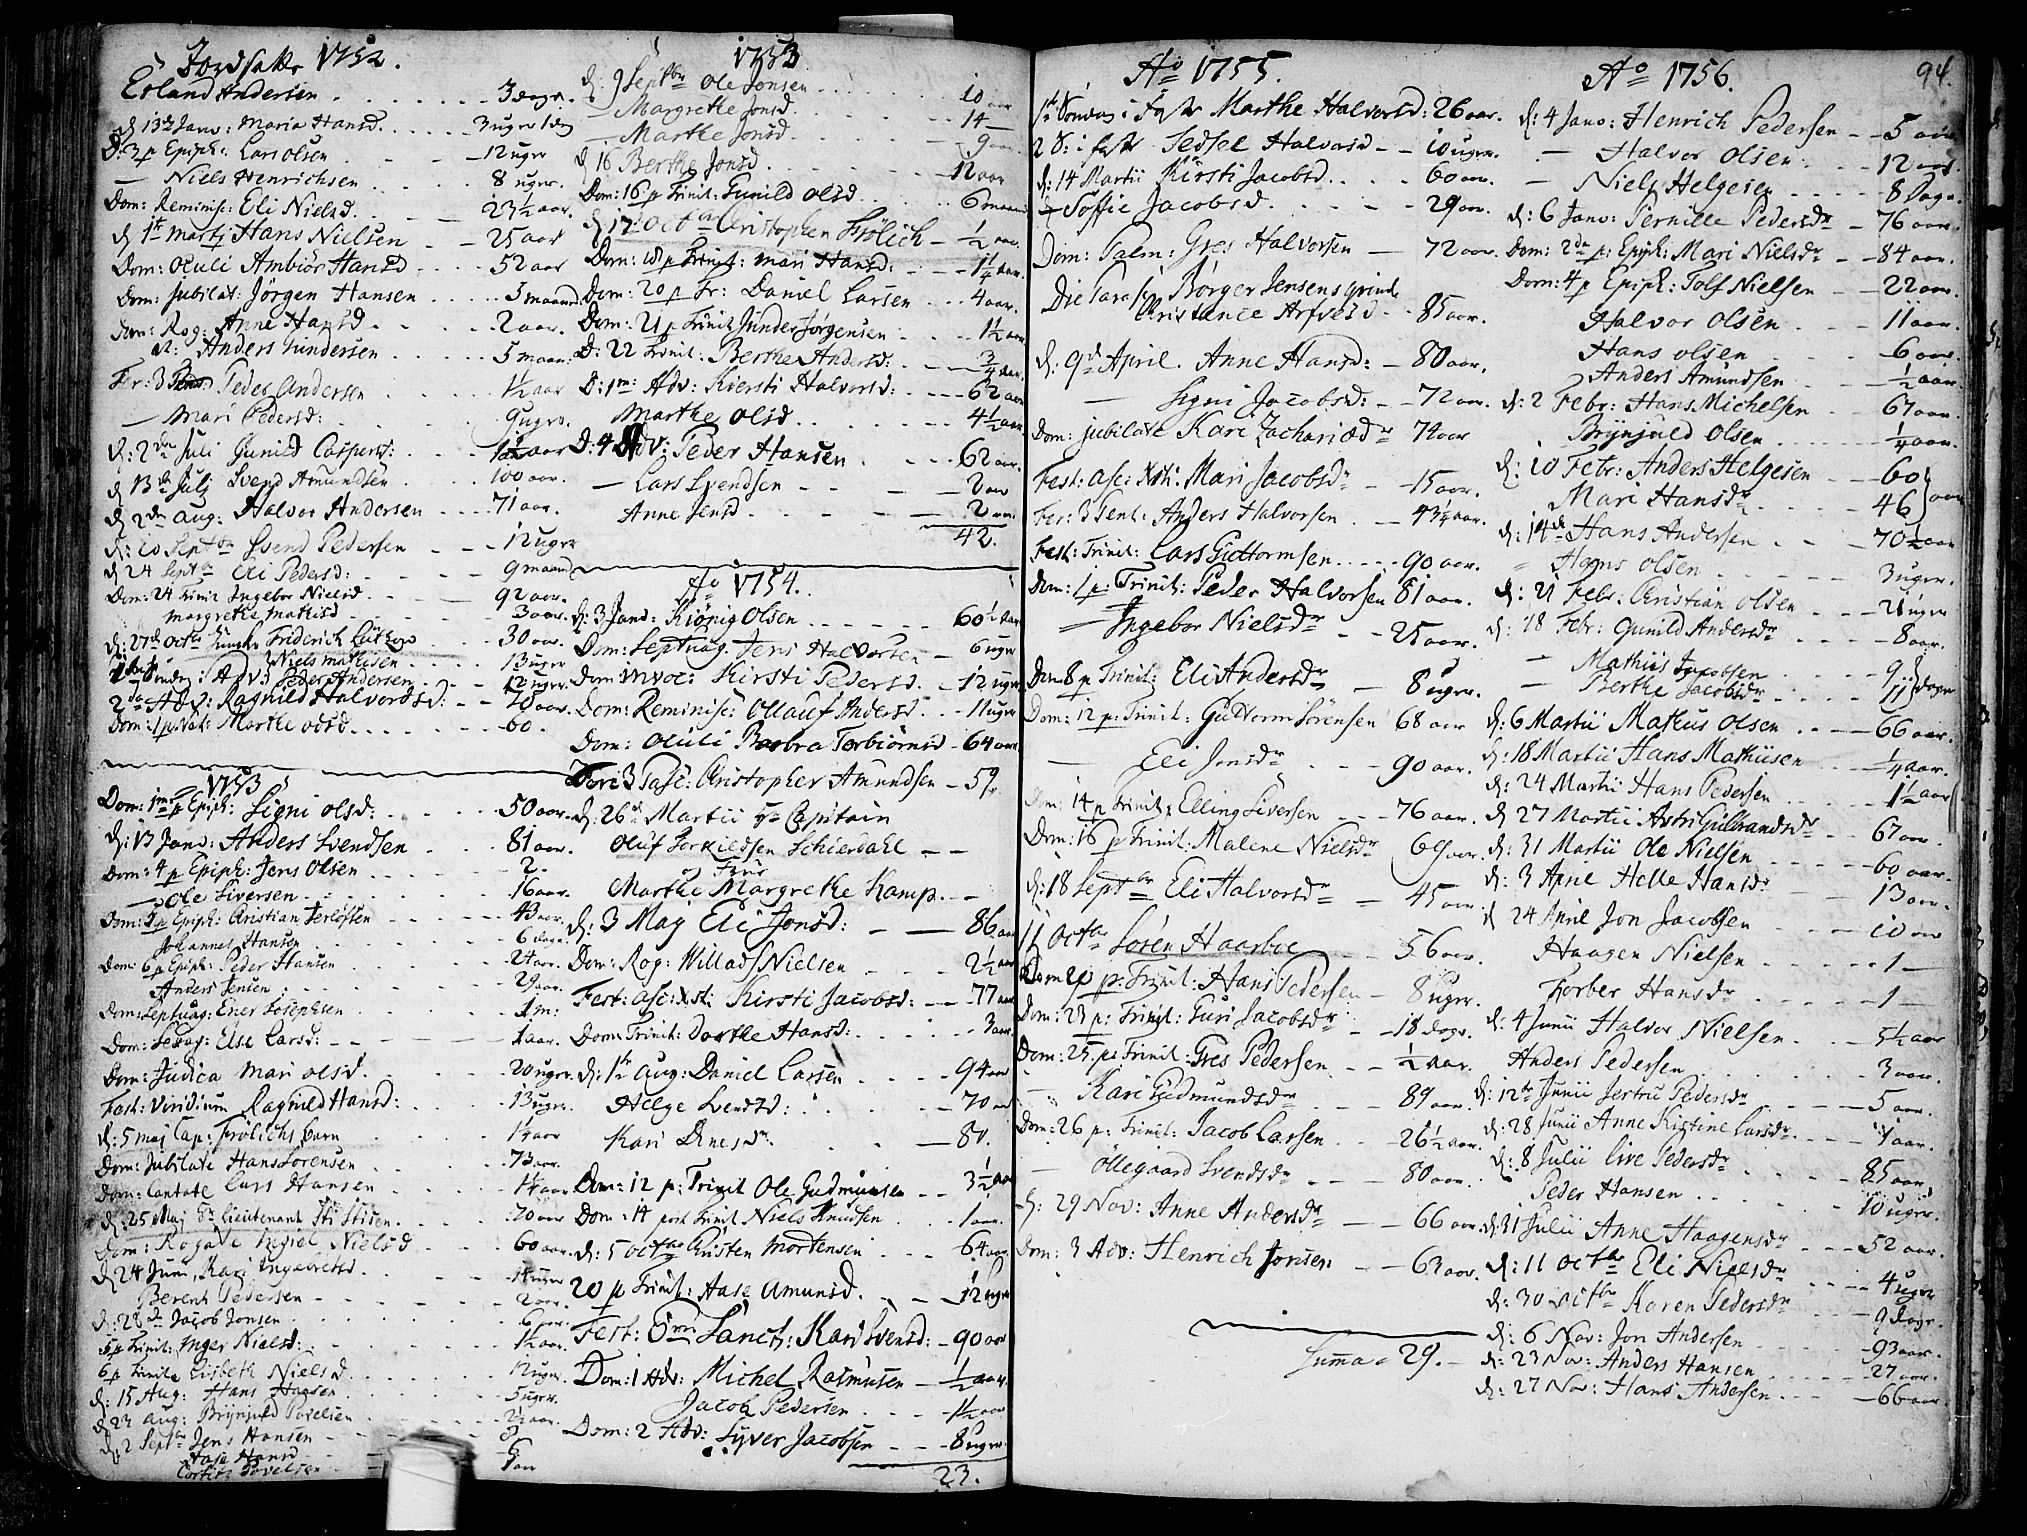 Jordsatte 1752.
Erland Andersen 3 dage.
d 13de Janv: Maria Hansd. 3 uger 1 dag
D: 3 p Epiph: Lars Olsen 12 uger
— Niels Henrichsen 8 uger.
Dom: Reminisc: Eli Nielsd. 23½ aar.
d 1st Martj Hans Nielsen 25 aar
Dom: Oculi Ambiör Hansd 52 aar
Dom: Jubilat: Jörgen Hansen 3 maand
Dom: Rog: Anne Hansd 2 aar.
d: Anders Gundersen 5 maan:
Fer: 3 Peder Andersen 1½ aar
— Mari Pedersd: 9 ugr.
d: 2den Juli Gunild Caspersd: aar
d 13de Julj Svend Amundsen 100 aar.
d 2den Aug: Halvor Andersen 71 aar.
d: 20 Septbr Svend Pedersen 12 ugr
d 24 Septbr Eli Pedersd: 9 maand
Dom: 24 Trinit Ingebor Nielsd 92 aar.
Margrethe Mathisd 3 aar.
d: 27de Octbr Friderich Lützow 30 aar.
Niels Mathisen 13 ugr
Adv: Peder Andersen 12 ugr.
2den Adv: Ragnild Halvorsd: 70 aar.
Dom: 1 p Nat: Marthe Olsd 60.
1753
Dom: 1me p Epiph: Signi Olsd: 50 aar.
d: 13 Janv: Anders Svendsen 81 aar.
Dom: 4 p Epiph: Jens Olsen 2.
— Ole Siversen 16 aar.
Dom: 5 p Epiph: Christian Terlofsen 43 aar.
Johannes Hansen 6 dage.
Dom: 6 p Epiph: Peder Hansen 24 aar.
Anders Jensen 29 aar.
Dom: Septuag: Ener Josephsen 1 m:
Dom: Sexag: Else Larsd: 1 aar.
Dom: Judica Mari Olsd. 20 uger.
Fest: Viridium Ragnild Hansd: 13 ugr.
d: 5 Maj Cap: Frölichs barn aar
Dom: Jubilate Hans Sorensen 73 aar.
Dom: Cantate Lars Hansen aar
d: 25 Maj Sr Lieutenant Sti Stisen. 70 aar
Dom: Rogate Nielsd 60 aar.
d 24 Juni, Kari Ingebretsd. ugr
Berent Pedersen 2 aar.
d: 28de Jacob Jonsen 6 aar.
5 p Trinit: Inger Nielsd: aar.
6 p Trinit Lisbeth Nielsd 12 ugr.
d: 15 Aug: Hans Hansen 5 ugr.
d 23 Aug: Brÿnjuld Povelsen 2½ aar.
d: 2 Septbr Jens Hansen
Aase Hansd 6
Povelsen aar
1753
d: 9 Septbr Ole Jonsen 10 aar
— Margrethe Jonsd. 14 —
— Marthe Jonsd. 9 aar
d 16 Berthe Jonsd 12 aar
Dom: 16 p Trinit: Gunild Olsd 6 maan
d 17 Octbr Christopher Frölich ½ aar.
Dom: 18 p Trinit: Mari Hansd: 1¼ aar.
Dom: 20 p Tr: Daniel Larsen 4 aar.
Dom: 21 p Trinit Gunder Jörgensen 1½ aar
D: 22 Trinit: Berthe Andersd: ¾ aar.
D: 1me Adv: Kiersti Halvorsd: 62 aar
Marthe Olsd 4½ aar
D: 4 Adv: Peder Hansen 62 aar.
— Lars Svendsen 2 aar
Anne Jensd 2 aar.
42.
Ao 1754.
d: 3 Janv: Kiöpig Olsen 60½ aar
Dom: Septuag Jens Halvorsen 6 ugr
Dom Invoc: Kirsti Pedersd. 12 ugr
Dom: Reminisc: Ollauf Andersd 11 ugr
Dom: Oculi Barbra Torbiörnsd 64 aar.
Fer: 3 Pasc: Christopher Amundsen 59.
d: 26de Martii Hr Capitain
Oluf Terkieldsen Schierdahl
og Frue
Marthe Margrethe Kamp.
d: 3 Maj Eli Jonsd: 86 aar
Dom: Rog: Willads Nielsen 2½ aar
Fest: asc: Xsti: Kirsti Jacobsd: 77 aar
Dom: Trinit: Dorthe Hansd: 3 aar.
d: 1ste Aug: Daniel Larsen 94 aar
Helge Svendsd: 70 aar
Kari Dinesdr 81.
Dom: 12 p: Trinit Ole Gudmunsen 3½ aar
Dom: 14 post Trinit Niels Knudsen 1 aar.
d: 5 Octbr Kristen Mortensen 64 aar
20 p Trinit: Aase Amunsd. 12 ugr
Fest: Omn: Sanct: Kari Svensd: 90 aar
Dom: 1 Adv: Michel Rasmusen ½ aar.
Jacob Pedersen 1½ aar
Dom: 2 Adv: Syver Jacobsen 8 ugr.
23.
Ao 1755.
1st Söndag i Faste Marthe Halvorsd: 26 aar.
2 S: i faste Sedsel Halvorsd 10 ugr.
d: 14 Martii Kirsti Jacobsd 60 aar.
d — Soffie Jacobsd. 29 aar.
Dom: Palm: Gres Halvorsen 72 aar.
Die Parasc: Börger Jensens qvinde
Christence Arfvesd 85 aar.
d: 9de April. Anne Hansd: 80 aar.
— Signi Jacobsd: 72 aar.
Dom: Jubilate Kari Zachariædr 74 aar
Fest: asc: Xsti: Mari Jacobsdr 15 aar.
Fer: 3 Pent: Anders Halvorsen 43¼ aar.
Fest: Trinit: Lars Guttormsen 90 aar.
Dom: 1 p: Trinit: Peder Halvorsen 81 aar.
— Ingebor Nielsdr 25 aar.
Dom 8 p Trinit: Eli Andersdr 8 ugr.
Dom: 12 p: Trinit: Guttorm Sörensen 68 aar
— Eli Jonsdr 90 aar.
Dom: 14 p Trinit: Elling Siversen 76 aar.
Dom: 16 p Trinit: Malene Nielsdr 69 aar.
d: 18 Septbr Eli Halvorsdr 45 aar.
11 Octbr Sören Haarboe 56 aar.
Dom 20 p: Trinit: Hans Pedersen 8 ugr.
Dom: 23 p: Trinit: Guri Jacobsdr 18 dage.
Dom: 25 p: Trinit: Gres Pedersen ½ aar.
— Kari Gudmundsdr 89 aar.
Dom: 26 p: Trinit: Jacob Larsen 26½ aar.
— Öllegaard Svendsdr 80 aar.
d: 29 Nov: Anne Andersdr 66 aar.
Dom: 3 Adv: Henrich Jonsen 63 aar.
Summa 29.
Ao 1756.
94.
d: 4 Janv: Henrich Pedersen 5 aar
— Halvor Olsen 12 aar.
— Niels Helgesen 8 dage.
d: 6 Janv: Pernille Pedersdr 76 aar.
Dom: 2da p: Epiph: Mari Nielsdr 84 aar.
Dom: 4 p Epiph: Tolf Nielsen 22 aar.
Halvor Olsen 11 aar.
Hans Olsen 6 aar.
Anders Amundsen ½ aar.
d: 2 Febr: Hans Michelsen 67 aar.
Brÿnjuld Olsen ¼ aar.
d: 10 Febr: Anders Helgesen 60
Mari Hansdr 46 } aar
d: 14de Hans Andersen 70½ aar
— Hans Olsen 3 ugr.
d: 21 Febr: Christian Olsen 21 ugr
d: 28 Febr: Gunild Andersdr 8 aar.
— Mathiis Jacobsen 9
— Berthe Jacobsdr 11 } dage
d: 6 Martii Mathis Olsen 66 aar.
d: 18 Martii Hans Mathiisen ¼ aar.
d: 24 Martii Hans Pedersen 1½ aar
d 27 Martii Astri Gulbrandsdr 67 aar.
d: 31 Martii Ole Nielsen 60 aar.
d: 3 April Helle Hansdr 13 aar.
d 24 April Jon Jacobsen 10 aar
Haagen Nielsen 1 —
Torber Hansdr 1 —
d: 4 Junii Halvor Nielsen 5½ aar
Anders Pedersen 3 aar.
d: 12te Junii Jertru Pedersdr 5 aar.
d: 28 Junii Anne Kistine Larsdr aar.
d: 8 Julii Live Pedersdr 85 aar.
Peder Hansen 10 ugr.
d: 31 Julii Anne Haagensdr 52 aar.
d: 11 Octbr Eli Nielsdr 4 ugr
d: 30 Octbr Karen Pedersdr 9 dage.
d: 6 Nov: Jon Andersen 93 aar.
d: 23 Nov: Anders Hansen 27 aar.
d: 27 Nov: Hans Andersen 66 aar.